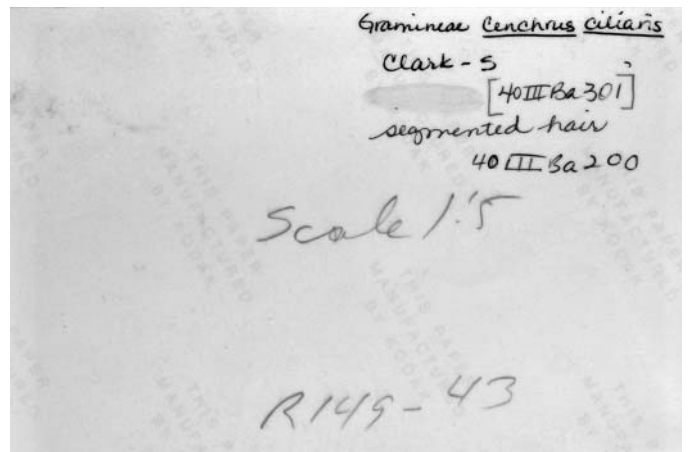 Gramineae Cenchrus ciliaris
Clark - S
[40 III Ba 301]
segmented hair
40 III Ba 200
Scale 1:5
R149-43
THIS PAPER
MANUFACTURED
BY KODAK